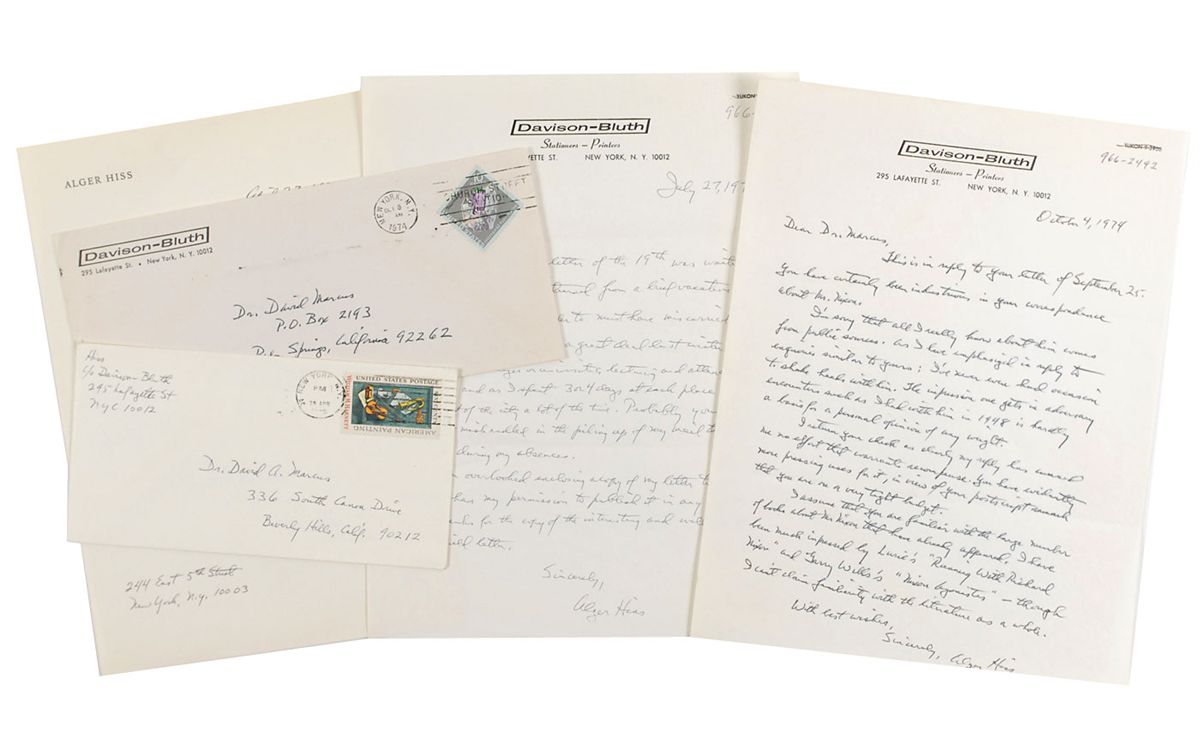 ALGER HISS
244 East 5th Street
New York, N.Y. 10003
Davison-Bluth
295 Lafayette St. • New York, N. Y. 10012
NEW YORK, N.Y.
1974
Dr. David Marcus
P.O. Box 2193
Springs, California 92262
Hiss
c/o Davison Bluth
295 Lafayette St
NYC 10012
NEW YORK
PM
UNITED STATES POSTAGE
AMERICAN PAINTING
Dr. David A. Marcus
336 South Canon Drive
Beverly Hills, Calif. 90212
966-
Davison-Bluth
Stationers – Printers
YETTE ST. NEW YORK, N. Y. 10012
July 27, 197
letter of the 19th was
from a brief vacation
must have miscarried
a great deal last winter
lecturing and
and as I spent 3 or 4 days at each place
of the city a lot of the time. Probably your
mishandled in the picking up of my mail
during my absences.
overlooked enclosing a copy of my letter to
has my permission to publish it in any
for the copy of the interesting and
letter.
Sincerely,
Alger Hiss
Davison-Bluth
Stationers – Printers
295 LAFAYETTE ST. NEW YORK, N. Y. 10012
966-2492
October 4, 1974
Dear Dr. Marcus,
This is in reply to your letter of September 25.
You have certainly been industrious in your correspondence
about Mr. Nixon.
I'm sorry that all I really know about him comes
from public sources. As I have emphasized in reply to
enquiries similar to yours: I've never even had occasion
to shake hands with him. The impression one gets in adversary
encounters such as I had with him in 1948 is hardly
a basis for a personal opinion of any weight.
I return your check as clearly my reply has caused
me no effort that warrants recompense. You have evidently
more pressing uses for it, in view of your postscript remark
that you are on a very tight budget.
I assume that you are familiar with the large number
of books about Mr. Nixon that have already appeared. I have
been much impressed by Lurie's "Running With Richard
Nixon" and Garry Wills's "Nixon Agonistes" — though
I can't claim familiarity with the literature as a whole.
With best wishes,
Sincerely, Alger Hiss